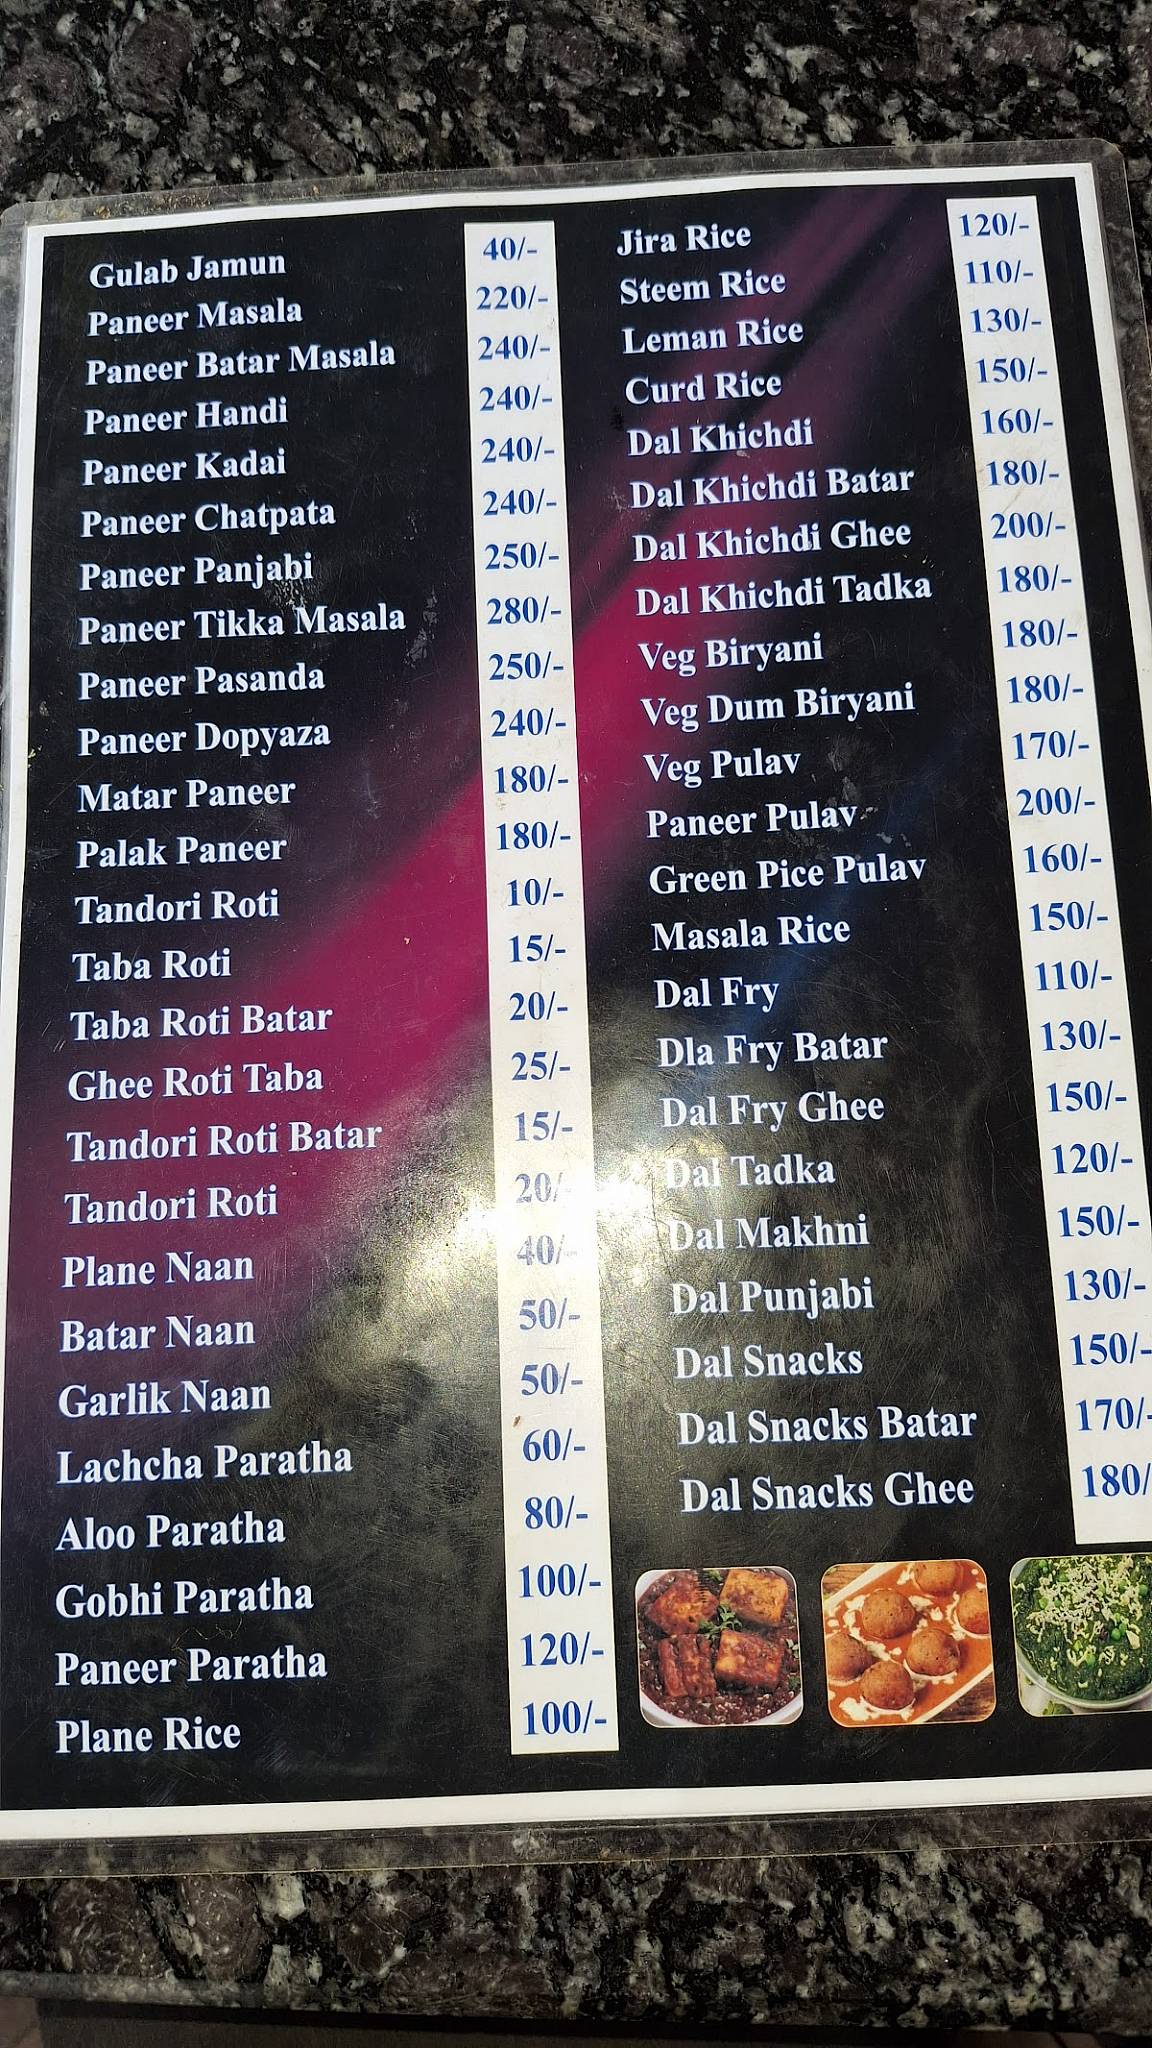 Gulab Jamun 40/-
Paneer Masala 220/-
Paneer Batar Masala 240/-
Paneer Handi 240/-
Paneer Kadai 240/-
Paneer Chatpata 240/-
Paneer Panjabi 250/-
Paneer Tikka Masala 280/-
Paneer Pasanda 250/-
Paneer Dopyaza 240/-
Matar Paneer 180/-
Palak Paneer 180/-
Tandori Roti 10/-
Taba Roti 15/-
Taba Roti Batar 20/-
Ghee Roti Taba 25/-
Tandori Roti Batar 15/-
Tandori Roti 20/-
Plane Naan 40/-
Batar Naan 50/-
Garlik Naan 50/-
Lachcha Paratha 60/-
Aloo Paratha 80/-
Gobhi Paratha 100/-
Paneer Paratha 120/-
Plane Rice 100/-
Jira Rice 120/-
Steem Rice 110/-
Leman Rice 130/-
Curd Rice 150/-
Dal Khichdi 160/-
Dal Khichdi Batar 180/-
Dal Khichdi Ghee 200/-
Dal Khichdi Tadka 180/-
Veg Biryani 180/-
Veg Dum Biryani 180/-
Veg Pulav 170/-
Paneer Pulav 200/-
Green Pice Pulav 160/-
Masala Rice 150/-
Dal Fry 110/-
Dla Fry Batar 130/-
Dal Fry Ghee 150/-
Dal Tadka 120/-
Dal Makhni 150/-
Dal Punjabi 130/-
Dal Snacks 150/-
Dal Snacks Batar 170/-
Dal Snacks Ghee 180/